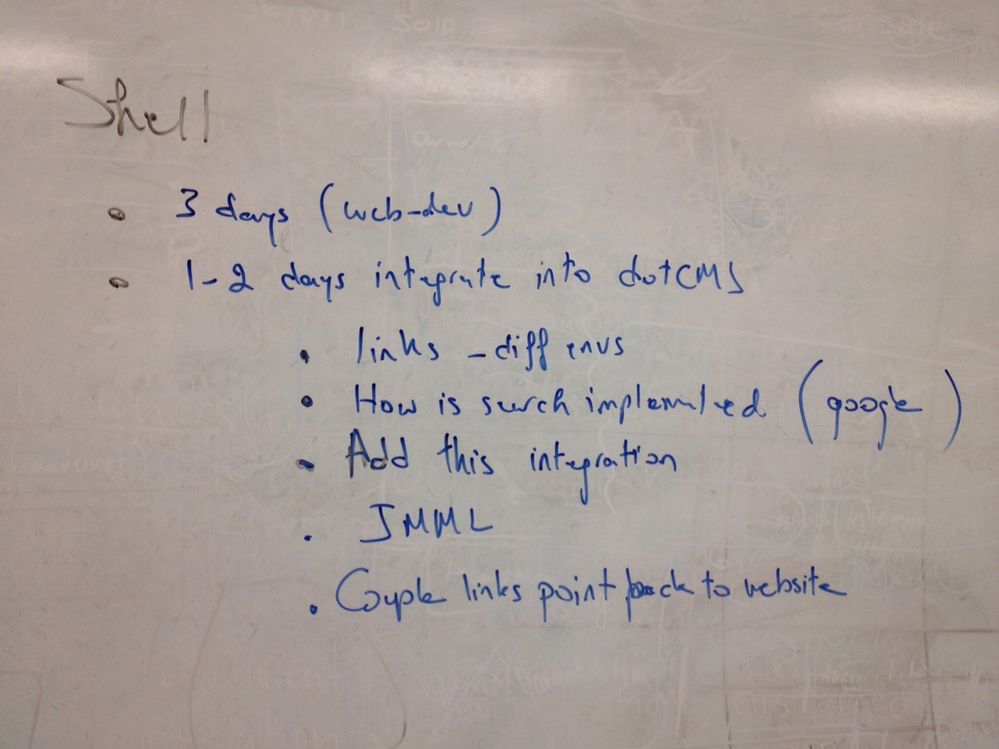 Shell
• 3 days (web-dev)
• 1-2 days integrate into dotCMS
• links - diff envs
• How is search implemented (google)
• Add this integration
• JMML
• Couple links point back to website